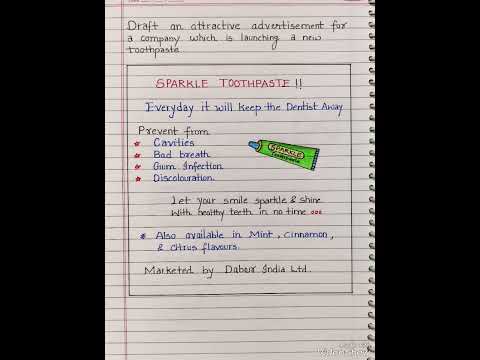 Draft an attractive advertisement for
a company which is launching a new
toothpaste
SPARKLE TOOTHPASTE !!
Everyday it will keep the Dentist Away
Prevent from
* Cavities
* Bad breath
* Gum Infection
* Discolouration.
SPARKLE
Let your smile sparkle & shine
With healthy teeth in no time ...
* Also available in Mint, Cinnamon,
& citrus flavours.
Marketed by Dabur India Ltd.